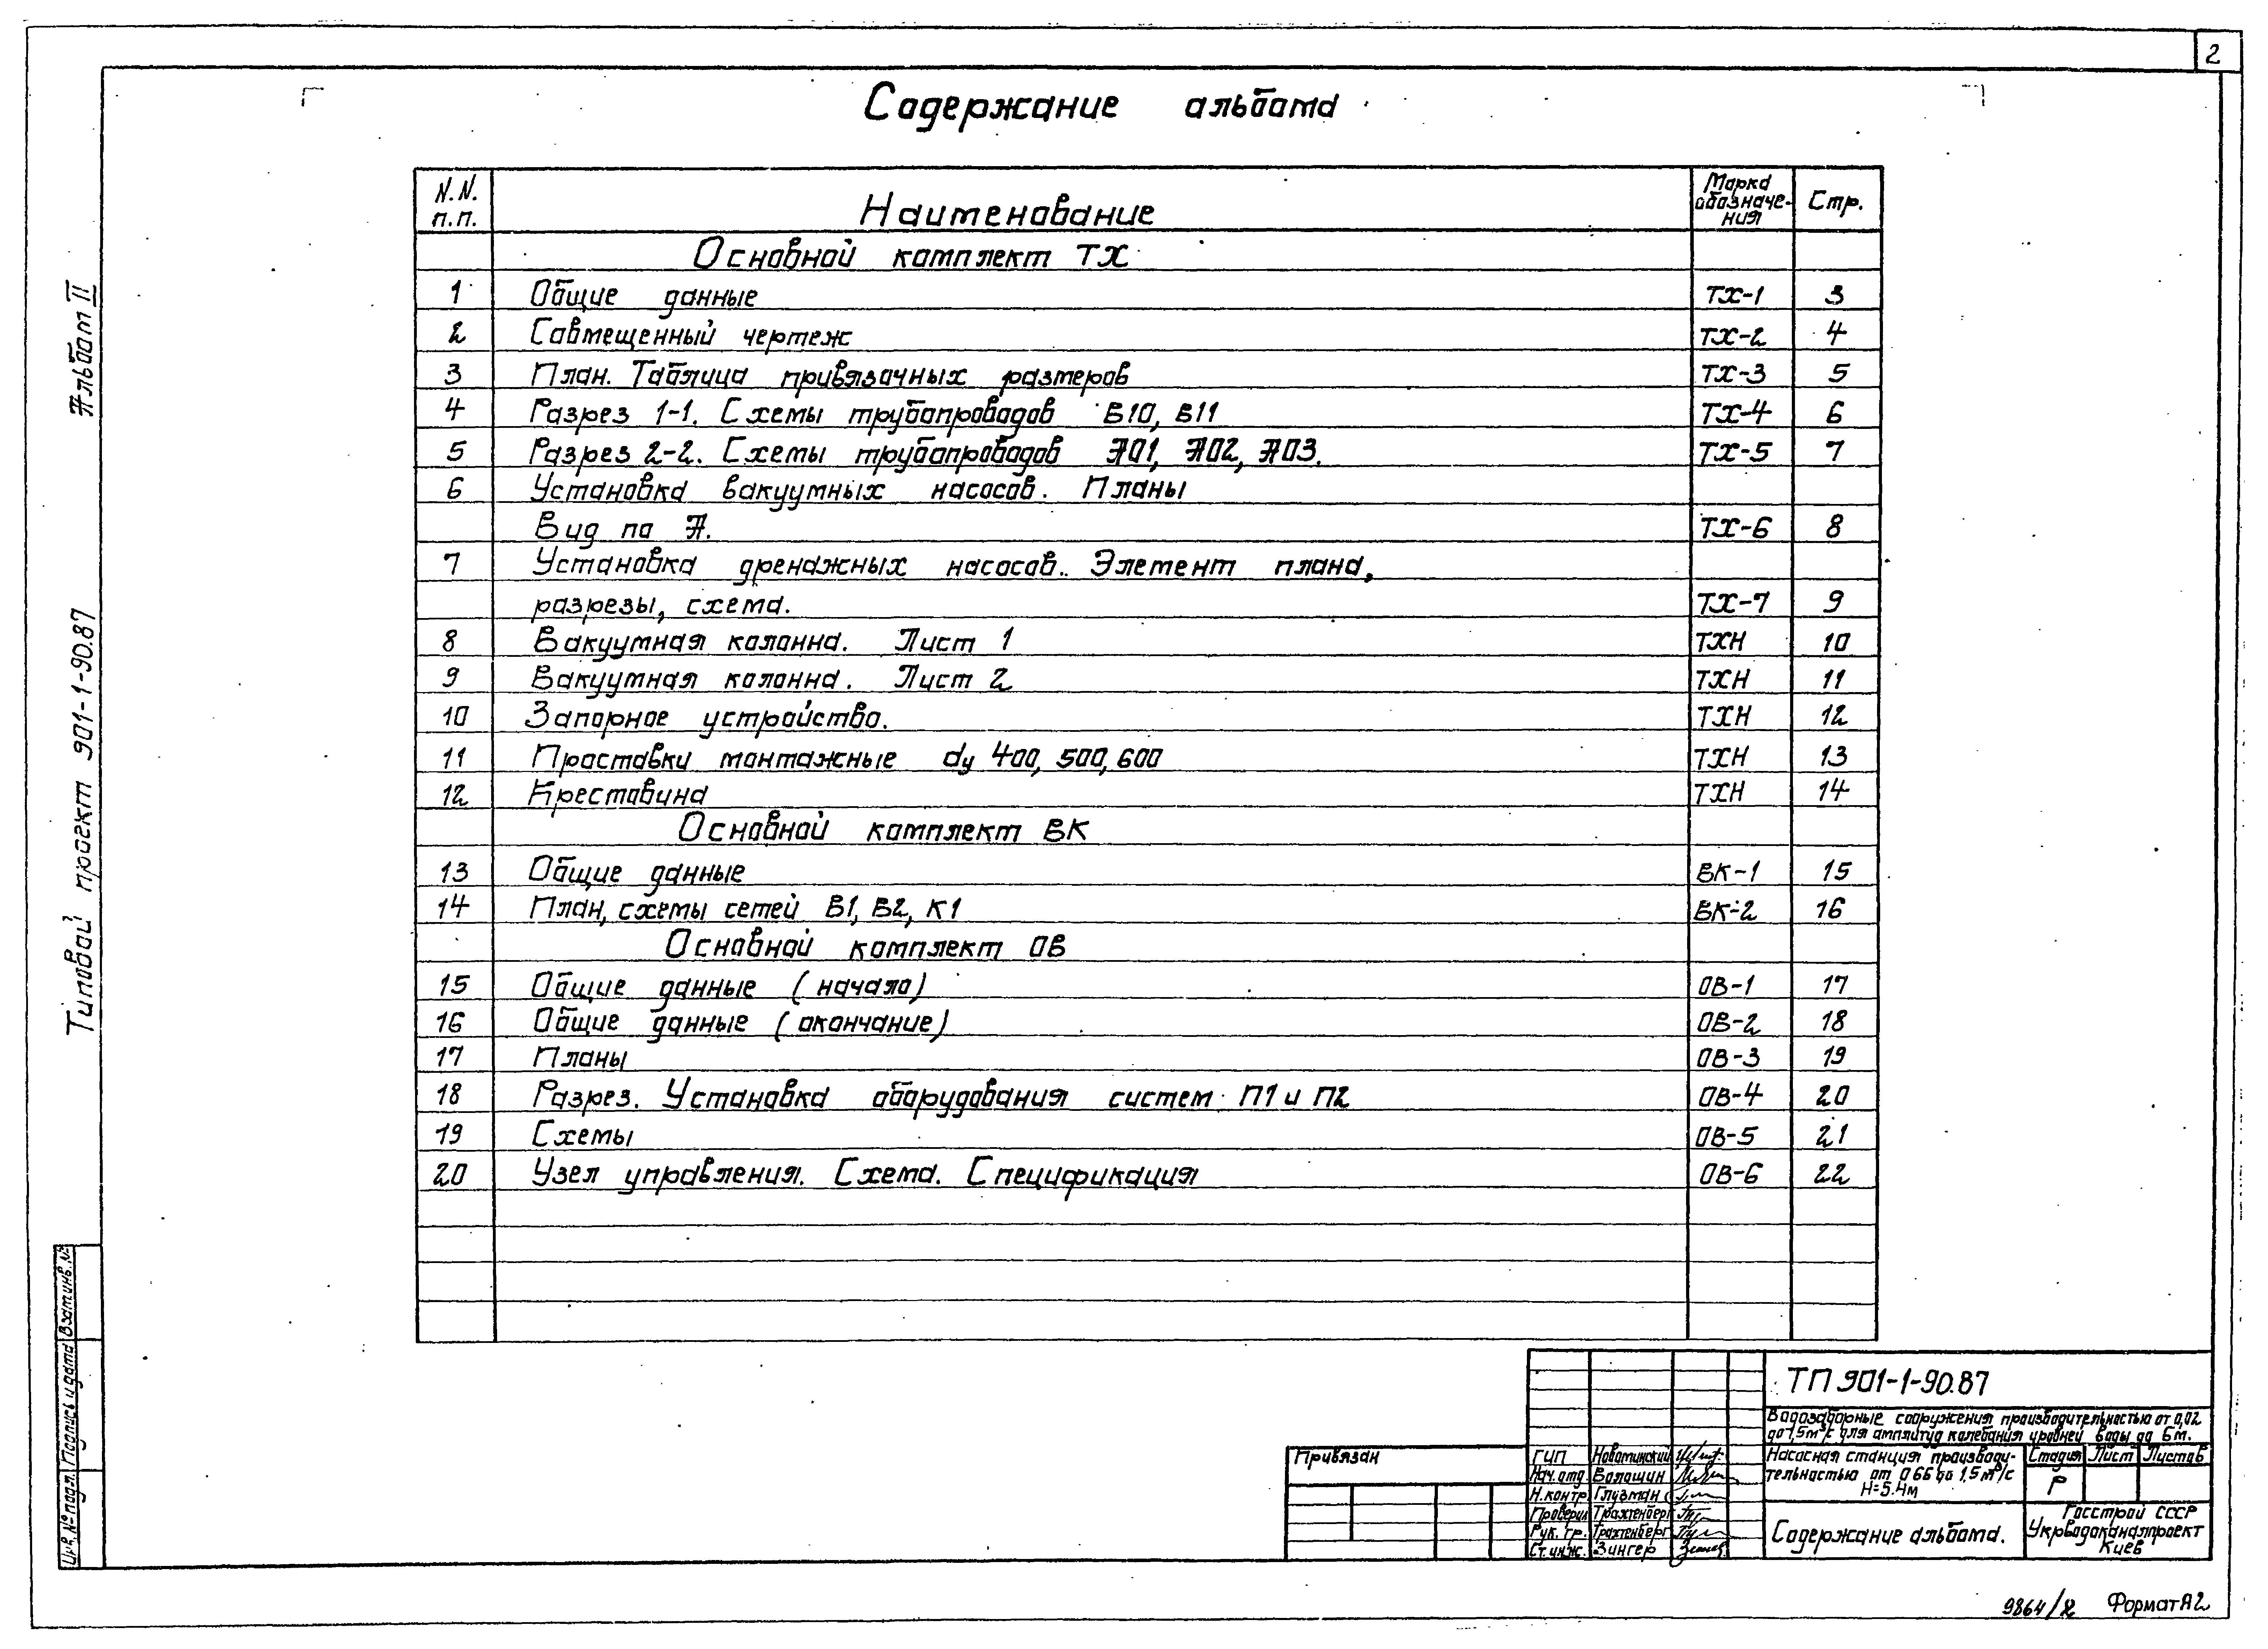 2
Содержание альбома
N.N. п.п. Наименование Марка обозначе- ния Стр.
Основной комплект ТХ
1 Общие данные ТХ-1 3
2 Совмещенный чертеж ТХ-2 4
3 План. Таблица привязочных размеров ТХ-3 5
4 Разрез 1-1. Схемы трубопроводов В10, В11 ТХ-4 6
5 Разрез 2-2. Схемы трубопроводов А01, А02, А03. ТХ-5 7
6 Установка вакуумных насосов. Планы
Вид по А. ТХ-6 8
7 Установка дренажных насосов.. Элемент плана,
разрезы, схема. ТХ-7 9
8 Вакуумная колонна. Лист 1 ТХН 10
9 Вакуумная колонна. Лист 2 ТХН 11
10 Запорное устройство. ТХН 12
11 Проставки монтажные dу 400, 500, 600 ТХН 13
12 Крестовина ТХН 14
Основной комплект ВК
13 Общие данные ВК-1 15
14 План, схемы сетей В1, В2, К1 ВК-2 16
Основной комплект ОВ
15 Общие данные (начало) ОВ-1 17
16 Общие данные (окончание) ОВ-2 18
17 Планы ОВ-3 19
18 Разрез. Установка оборудования систем П1 и П2 ОВ-4 20
19 Схемы ОВ-5 21
20 Узел управления. Схема. Спецификация ОВ-6 22
Альбом II
Типовой проект 901-1-90.87
Взам.инв.№
Подпись и дата
Инв.№ подл.
Привязан
ТП 901-1-90.87
Водозаборные сооружения производительностью от 0,02
до 1,5м³/с для амплитуд колебания уровней воды до 6м.
ГИП Новоминский
Нач.отд. Волошин
Н.контр. Глузман
Проверил Трахтенберг
Рук. гр. Трахтенберг
Ст.инж. Зингер
Насосная станция производи-
тельностью от 0,66 до 1,5 м³/с
Н=5.4м
Стадия Лист Листов
Р
Содержание альбома.
Госстрой СССР
Укрводоканалпроект
Киев
9864/2 Формат А2